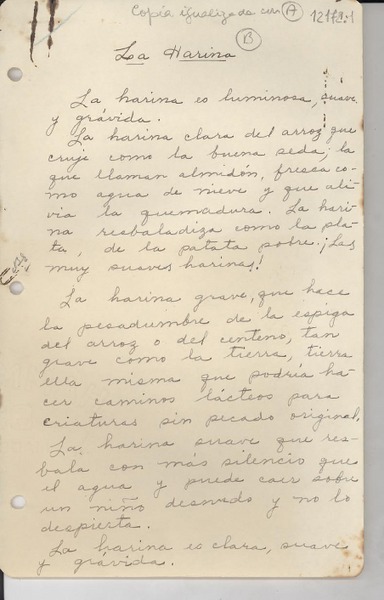 Copia igualizada con A 1211/1
B
La Harina
La harina es luminosa, suave
y grávida.
La harina clara del arroz que
cruje como la buena seda; la
que llaman almidón, fresca co-
mo agua de nieve y que ali-
via la quemadura. La hari-
na resbaladiza como la pla-
ta, de la patata pobre. ¡Las
muy suaves harinas!
La harina grave, que hace
la pesadumbre de la espiga
del arroz o del centeno, tan
grave como la tierra, tierra
ella misma que podría ha-
cer caminos lácteos para
criaturas sin pecado original.
La harina suave que res-
bala con más silencio que
el agua y puede caer sobre
un niño desnudo y no lo
despierta.
La harina es clara, suave
y grávida.